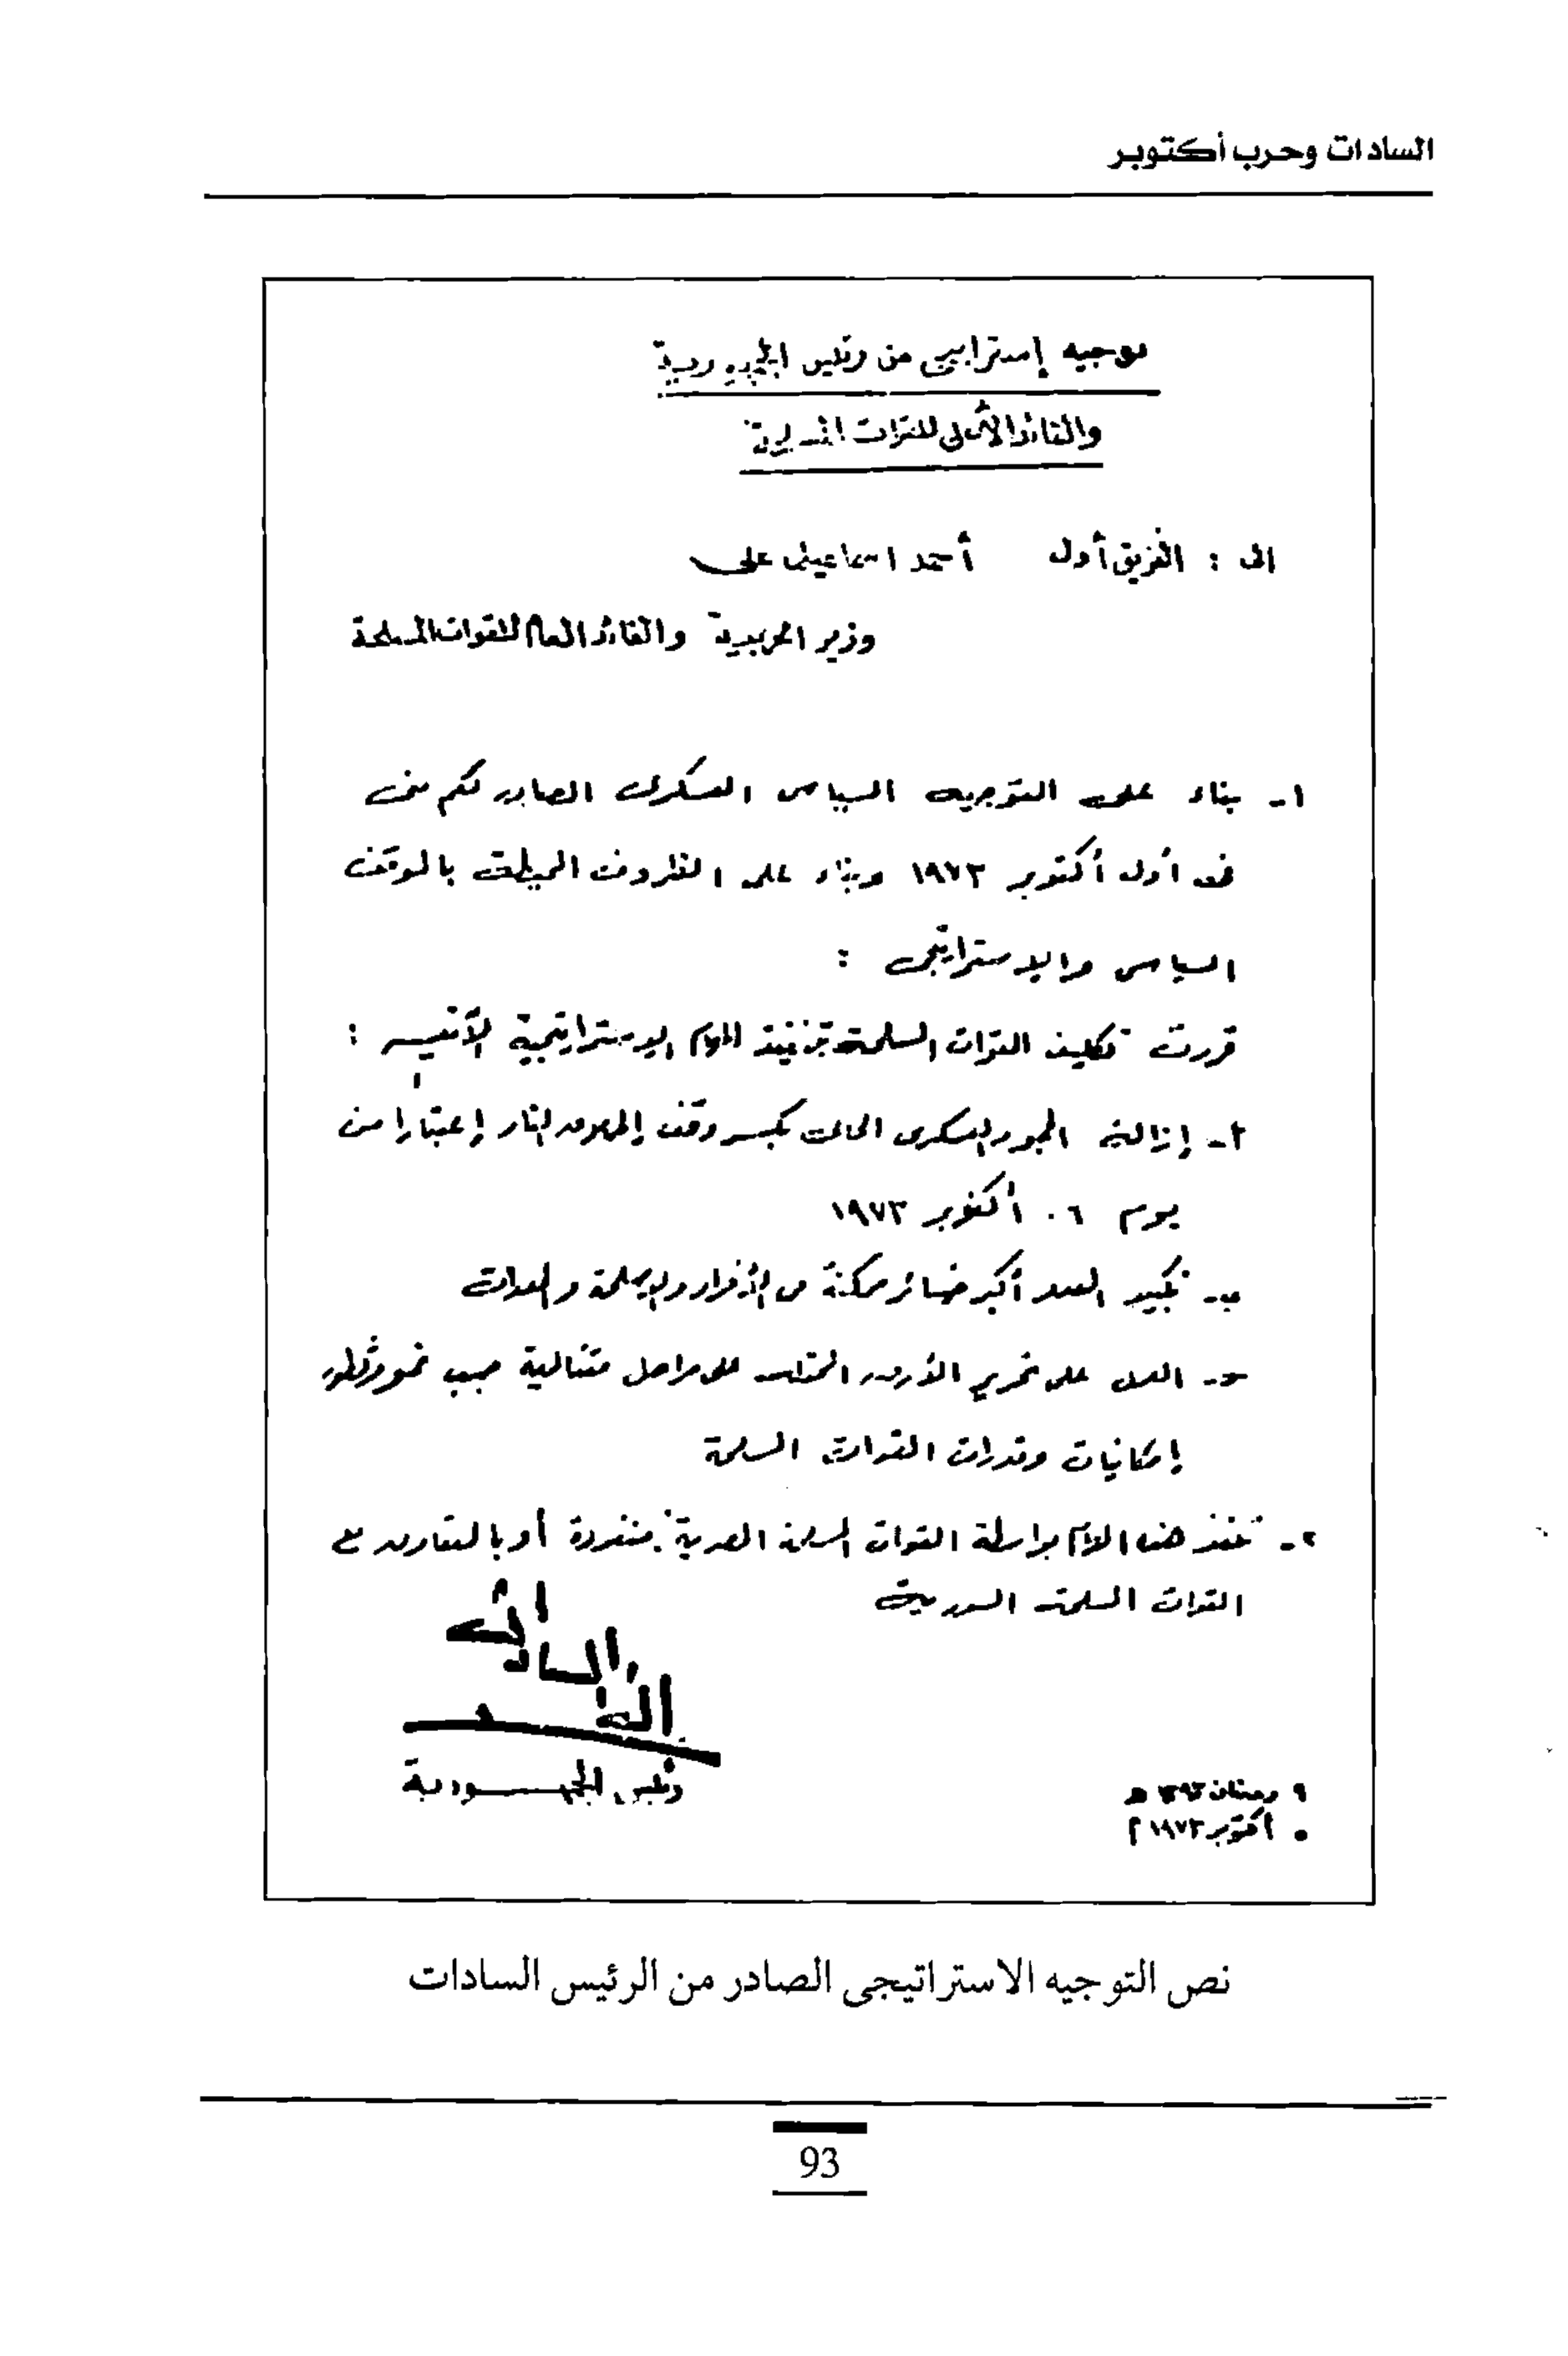 السادات وحرب أكتوبر
توجيه إستراتيجي من رئيس الجمهورية
والقائد الأعلى للقوات المسلحة
الى : الفريق أول أحمد اسماعيل على
وزير الحربية والقائد العام للقوات المسلحة
١- بناء على التوجيه السياسى العسكرى الصادر لكم منى
فى أول أكتوبر ١٩٧٣ وبناء على الظروف المحيطة بالموقف
السياسى والاستراتيجى :
قررت تكليف القوات المسلحة بتنفيذ المهام الاستراتيجية الآتية :
أ- إزالة الجمود العسكرى الحالى بكسر وقف إطلاق النار إعتبارا من
يوم ٦ . أكتوبر ١٩٧٣
ب- تكبيد العدو أكبر خسائر ممكنة من الأفراد والاسلحة والمعدات
جـ- العمل على تحرير الأرض المحتلة على مراحل متتالية حسب نمو وتطور
إمكانيات وقدرات القوات المسلحة
٢- تنفذ هذه المهام بواسطة القوات المسلحة المصرية منفردة أو بالتعاون مع
القوات المسلحة السورية
أنور السادات
رئيس الجمهورية
٩ رمضان ١٣٩٣ هـ
٥ أكتوبر ١٩٧٣ م
نص التوجيه الاستراتيجى الصادر من الرئيس السادات
93